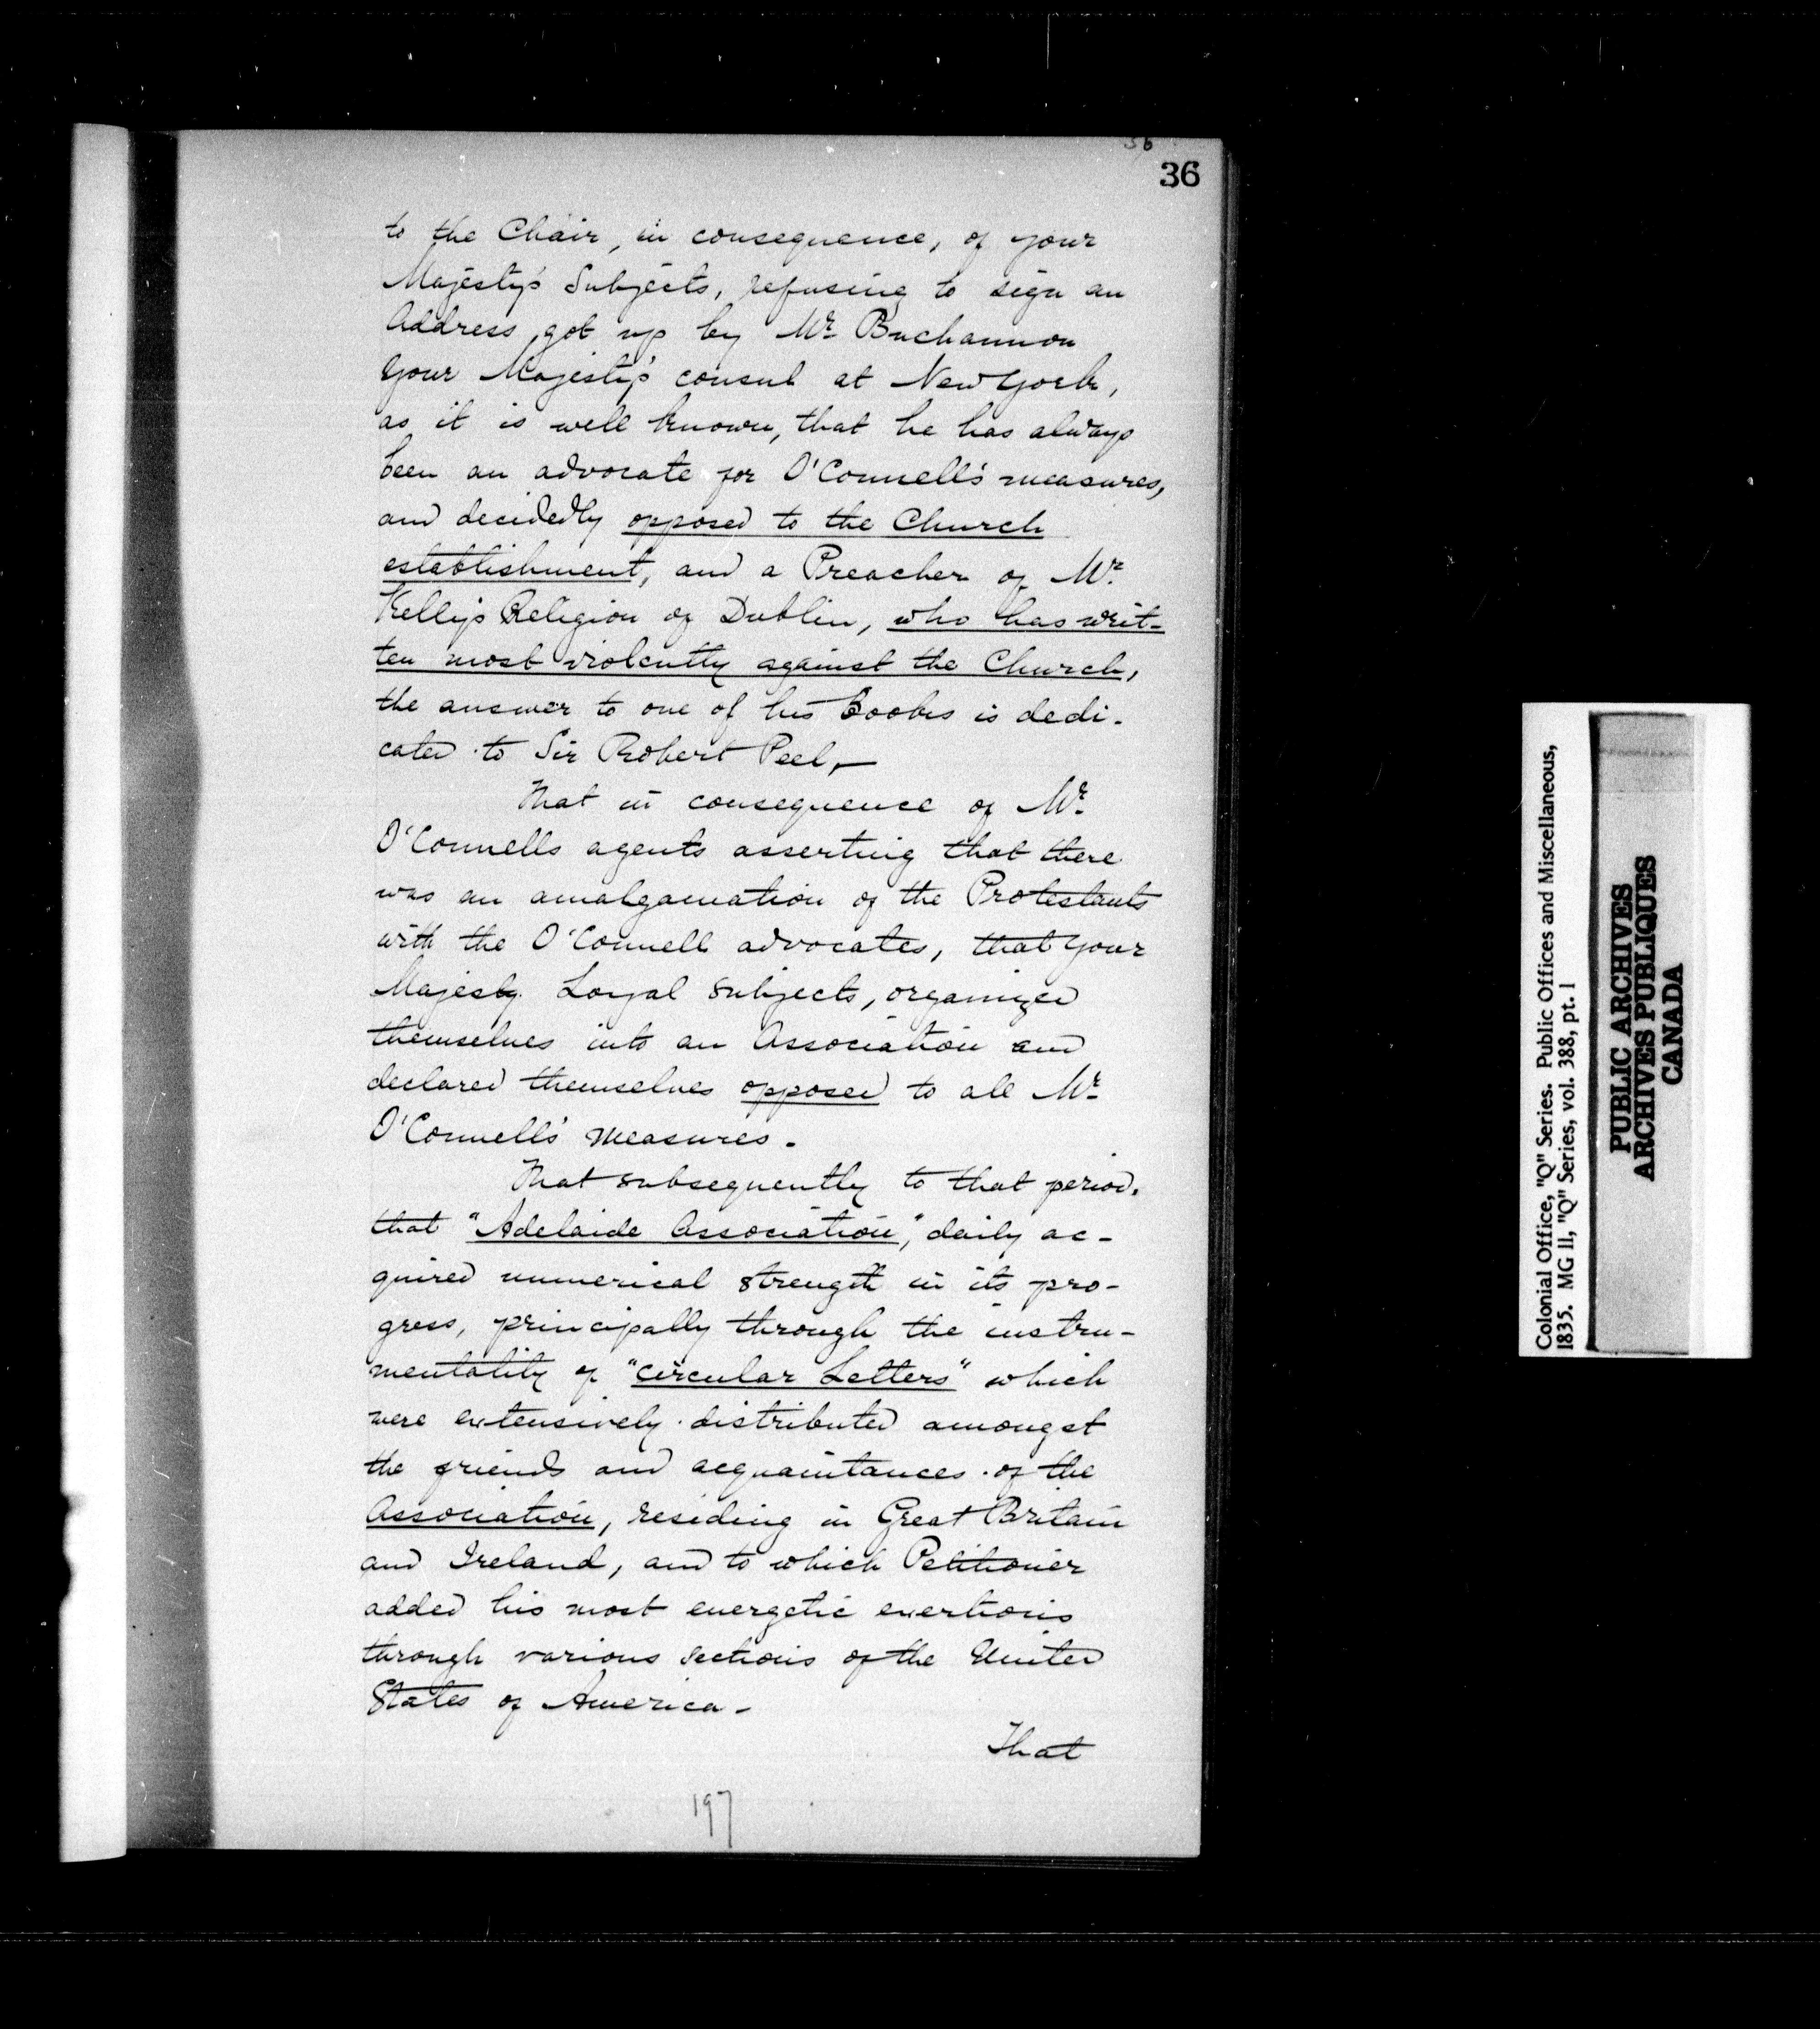 36
36
to the Chair, in consequence, of your
Majesty's Subjects, refusing to sign an
Address, got up by Mr Buchannon
Your Majesty's consul at New York,
as it is well known, that he has always
been an advocate for O'Connell's measures,
and decidedly opposed to the Church
establishment, and a Preacher of Mr
Kelly's Religion of Dublin, who has writ-
ten most violently against the Church,
the answer to one of his Books is dedi-
cated to Sir Robert Peel,—
That in consequence of Mr
O'Connells agents asserting that there
was an amalgamation of the Protestants
with the O'Connell advocates, that your
Majesty. Loyal subjects, organized
themselves into an Association and
declared themselves opposed to all Mr
O'Connell's measures-
That subsequently to that period,
that "Adelaide Association", daily ac-
quired numerical strength in its pro-
gress, principally through the instru-
mentality of "circular Letters" which
were extensively distributed amongst
the friends and acquaintances of the
Association, residing in Great Britain
and Ireland, and to which Petitioner
added his most energetic exertions
through various sections of the United
States of America-
That
197
Colonial Office, "Q" Series. Public Offices and Miscellaneous,
1835. MG 11, "Q" Series, vol. 388, pt. 1
PUBLIC ARCHIVES
ARCHIVES PUBLIQUES
CANADA